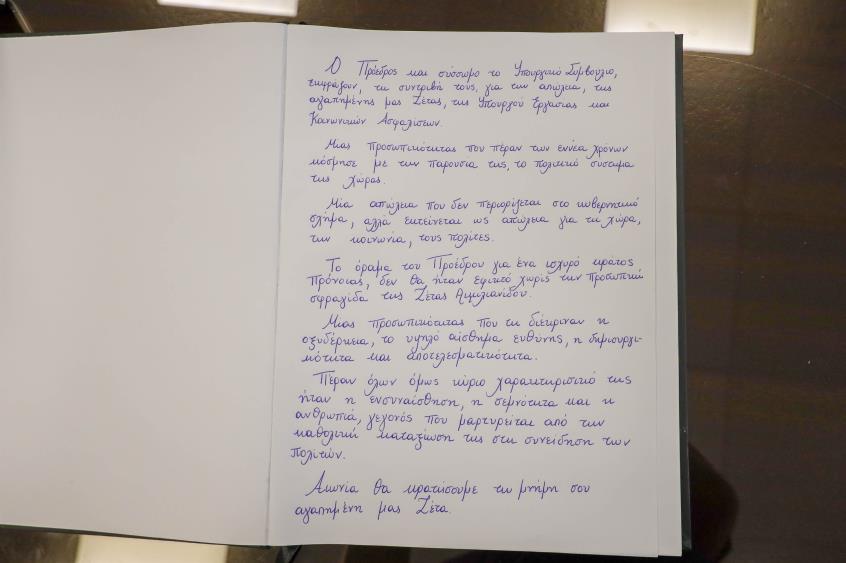 Ο Πρόεδρος και σύσσωμο το Υπουργικό Συμβούλιο,
εκφράζουν, τη συντριβή τους, για την απώλεια, της
αγαπημένης μας Ζέτας, της Υπουργού Εργασίας και
Κοινωνικών Ασφαλίσεων.
Μιας προσωπικότητας που πέραν των εννέα χρόνων
κόσμησε με την παρουσία της, το πολιτικό σύστημα
της χώρας.
Μία απώλεια που δεν περιορίζεται στο κυβερνητικό
σχήμα, αλλά εκτείνεται ως απώλεια για τη χώρα,
την κοινωνία, τους πολίτες.
Το όραμα του Προέδρου για ένα ισχυρό κράτος
Πρόνοιας, δεν θα ήταν εφικτό χωρίς την προσωπική
σφραγίδα της Ζέτας Αιμιλιανίδου.
Μιας προσωπικότητας που τη διέκριναν η
οξυδέρκεια, το υψηλό αίσθημα ευθύνης, η δημιουργι-
κότητα και αποτελεσματικότητα.
Πέραν όλων όμως κύριο χαρακτηριστικό της
ήταν η ενσυναίσθηση, η σεμνότητα και η
ανθρωπιά, γεγονός που μαρτυρείται από την
καθολική καταξίωση της στη συνείδηση των
πολιτών.
Αιωνία θα κρατήσουμε τη μνήμη σου
αγαπημένη μας Ζέτα.